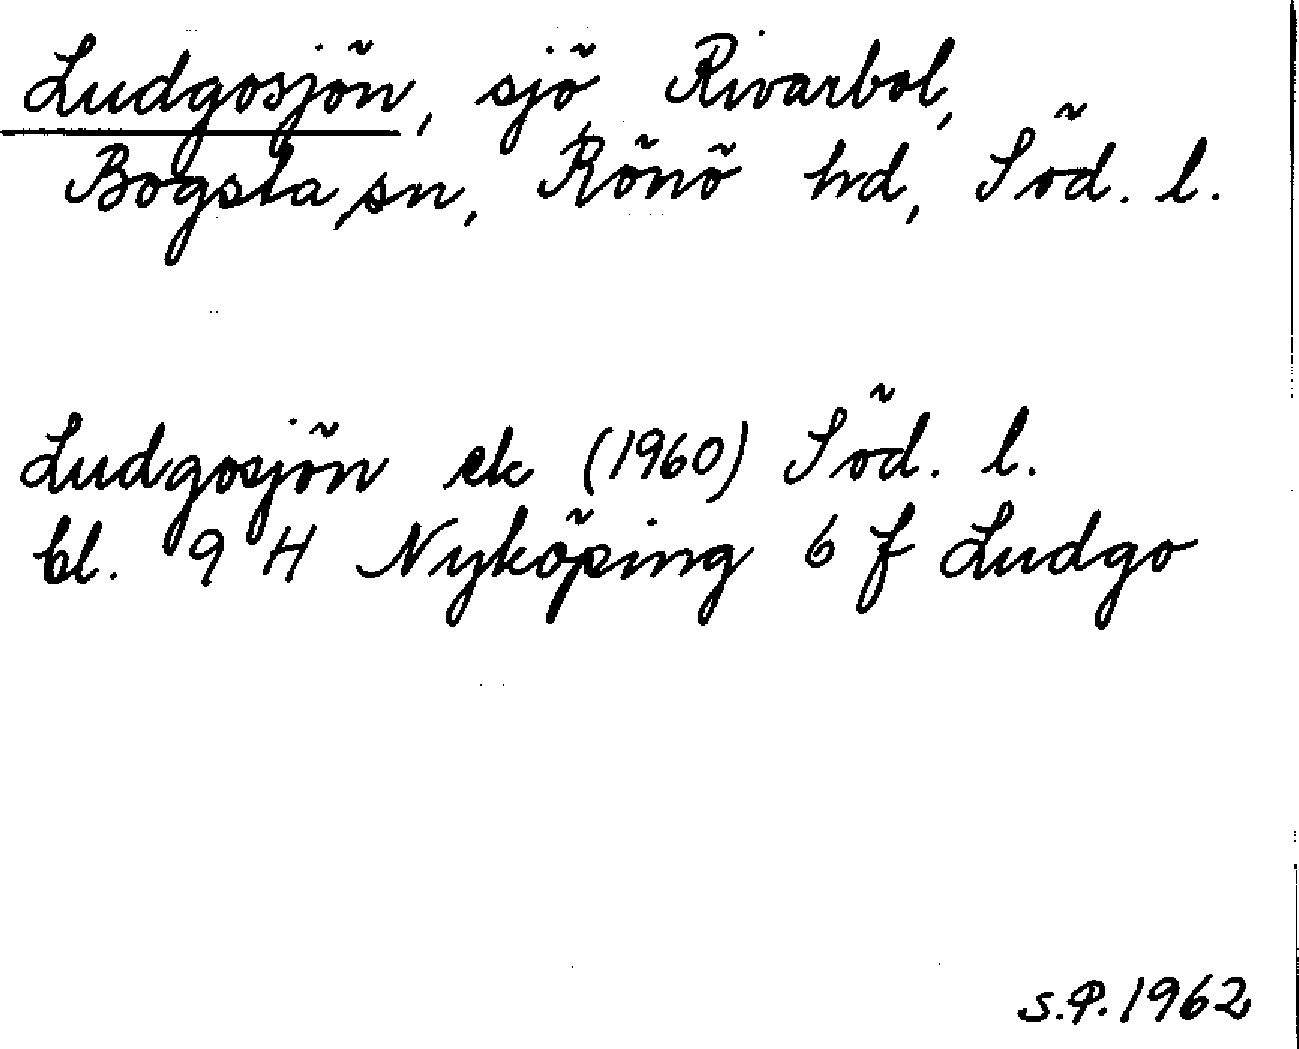 Ludgosjön, sjö Rivarbol,
Bogsta sn, Rönö hd, Söd. l.
Ludgosjön ek (1960) Söd. l.
bl. 9 H Nyköping 6 f Ludgo
S.P. 1962